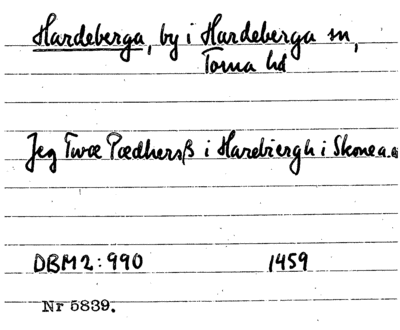 Hardeberga, by i Hardeberga sn,
Torna hd
Jeg Twæ Pædherß i Harebiergh i Skone a.
DBM2: 990 1459
Nr 5839.